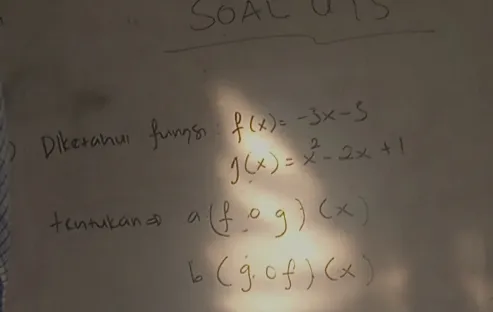 SOAL UTS
) Diketahui fungsi : f(x) = -3x - 5
g(x) = x² - 2x + 1
tentukan ⇒ a (f o g) (x)
b (g o f) (x)